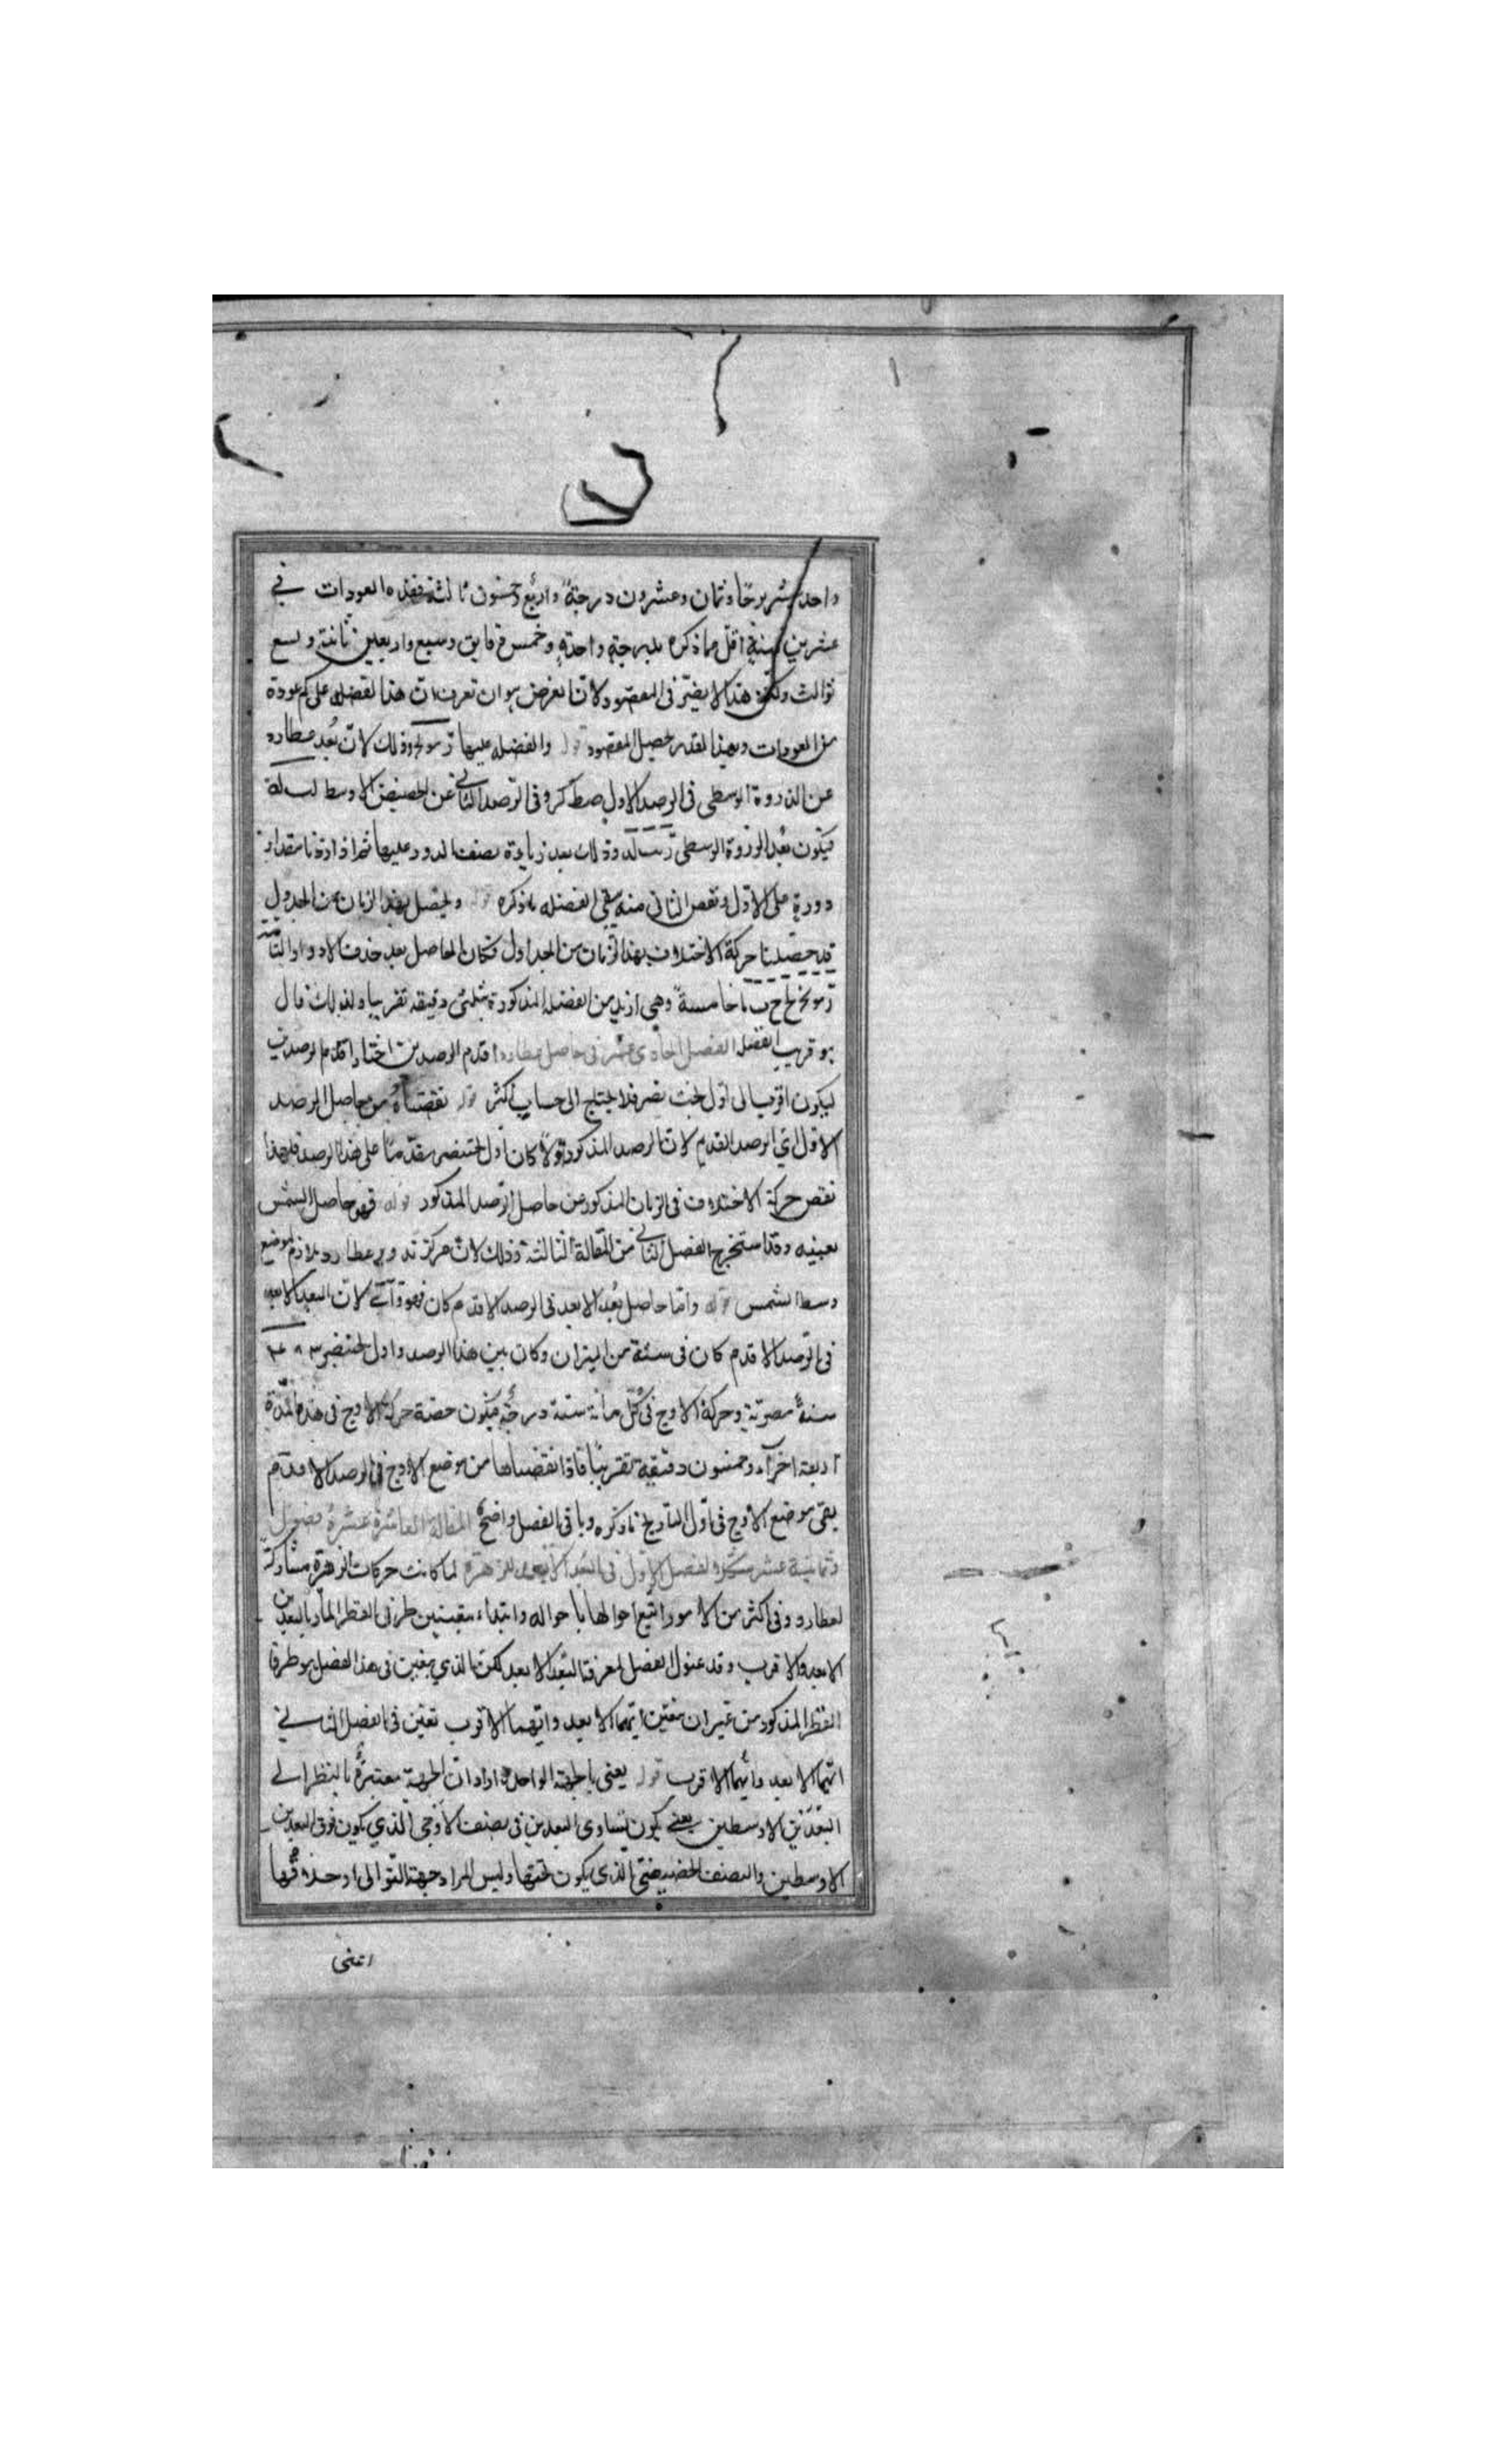 واحد عشر برجا وثمان وعشرون درجة واربع وخمسون ثالثة فهذه العودات في
عشرين سنة اقل مما ذكره بدرجة واحدة وخمس دقايق وسبع واربعين ثانية وتسع
ثوالث ولكن هذا لا يضر فى المقصود لان الغرض هو ان تعرف ان هذا لفضله على كم عودة
من العودات وبهذا القدر يحصل المقصود قوله والفضله عليها وذلك لان بعد عطارد
عن الذروة الوسطى فى الرصد الاول صط كر وفى الرصد الثانى عن الحضيض الاوسط لب لة
فيكون بعد الذروة الوسطى وذلك بعد زيادة نصف الدور عليها ثم اذا زدنا مقدار
دورة على الاول ونقص الثانى منه بقى الفضله ما ذكره قوله ويحصل بهذا الزمان من الجدول
قد حصلنا حركة الاختلاف بهذا الزمان من الجداول فكان الحاصل بعد حذف الادوار التامة
خامسة وهى ازيد من الفضلة المذكورة بثلثى دقيقة تقريبا ولذلك قال
هو قريب الفضله الفصل الحادى عشر فى حاصل عطارد اقدم الرصدين اختار اقدم الرصدين
ليكون اقرب الى اول بخت نصر فلا يحتاج الى حساب اكثر قوله نقصناه من حاصل الرصد
الاول اي الرصد القديم لان الرصد المذكور اولا كان اول بختنصر مقدما على هذا الرصد فلهذا
نقص حركة الاختلاف فى الزمان المذكور من حاصل الرصد المذكور قوله فهو حاصل الشمس
بعينه وقد استخرج الفصل الثانى من المقالة الثالثة وذلك لان مركز تدوير عطارد يلازم لموضع
وسط الشمس قوله واما حاصل بعد الابعد فى الرصد الاقدم كان فهو لان البعد الابعد
فى الرصد الاقدم كان فى ستة من الميزان وكان بين هذا الرصد واول بختنصر
سنة مصرية وحركة الاوج فى كل مائة سنة درجة فيكون حصة حركة الاوج فى هذه المدة
اربعة اجزآء وخمسون دقيقة تقريبا فاذا نقصناها من موضع الاوج فى الرصد الاقدم
بقى موضع الاوج فى اول التاريخ ما ذكره وباقى الفصل واضح المقالة العاشرة عشرة فصول
وثمانية عشر شكلا الفصل الاول فى البعد الابعد للزهرة لما كانت حركات الزهرة مشاركة
لعطارد وفى اكثر من الامور اتبع احوالها باحواله وابتداء بتعيين طرفى القطر المار بالبعدين
الابعد والاقرب وقد عنون الفصل لمعرفة البعد الابعد لكن الذي يتعين فى هذا الفصل هو طرفا
القطر المذكور من غير ان يتعين ايهما الابعد وايهما الاقرب تعين فى الفصل الثاني
ايهما الابعد وأيهما الاقرب قوله يعنى بالجهة الواحدة اراد ان الجهة معتبرة بالنظر الى
البعدين الاوسطين يعنى يكون تساوى البعدين فى نصف الاوجى الذي يكون فوق البعدين
الاوسطين والنصف الحضيضى الذى يكون تحتها وليس المراد جهة التوالى او خلافها
اعنى